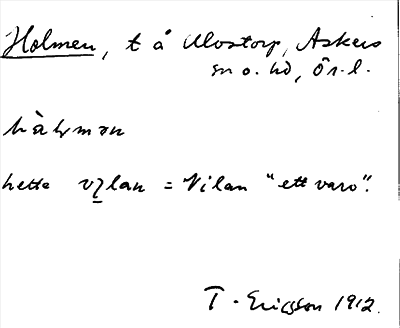 Holmen, t å Alvstorp, Askers
sn o. hd, Ör. l.
hette vilan = Vilan "ett varo".
T. Ericsson 1912.